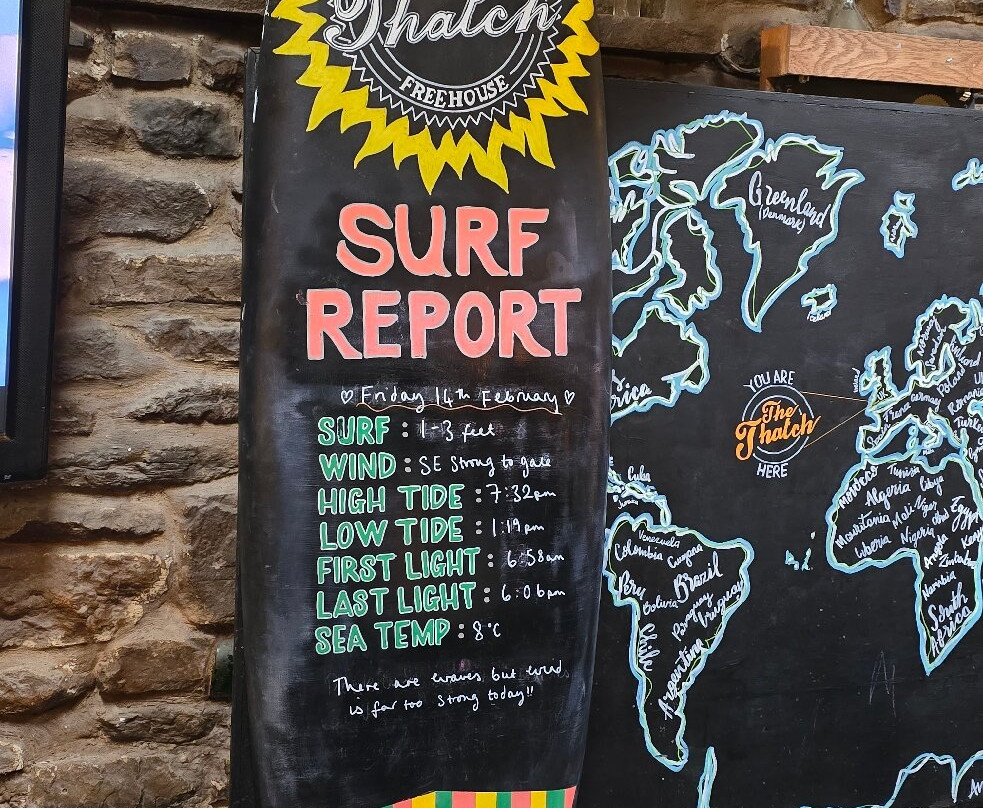 Thatch
FREEHOUSE
SURF
REPORT
♡ Friday 14th February ♡
SURF : 1-3 feet
WIND : SE Strong to gale
HIGH TIDE : 7:32pm
LOW TIDE : 1:19pm
FIRST LIGHT : 6:58am
LAST LIGHT : 6:06pm
SEA TEMP : 8°C
There are waves but wind
is far too strong today!!
Greenland
(Denmark)
Iceland
Norway
Sweden
Finland
Poland
Germany
Romania
Turkey
UK
YOU ARE
The
Thatch
HERE
Cuba
Morocco
Tunisia
Algeria
Libya
Mauritania
Mali
Niger
Egypt
Liberia
Nigeria
Angola
Zimbabwe
Namibia
South
Africa
Venezuela
Colombia
Guyana
Peru
Brazil
Bolivia
Paraguay
Uruguay
Chile
Argentina